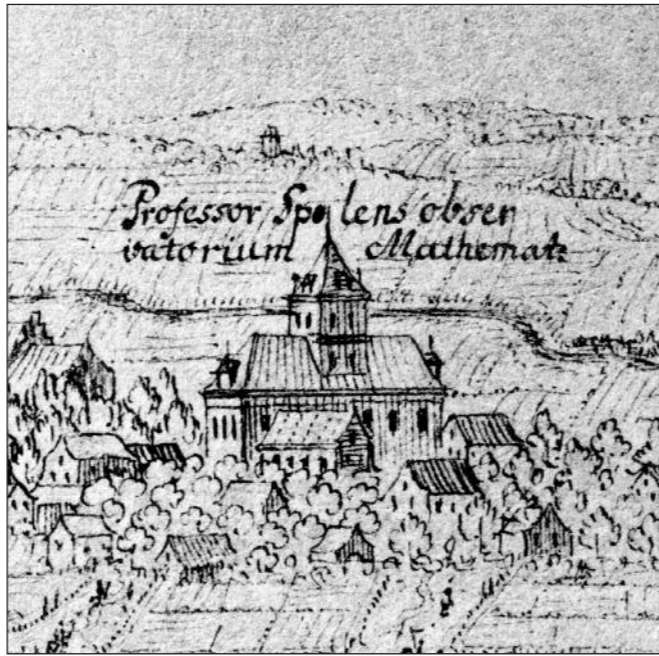 Professor Spolens obser
vatorium Mathemat: